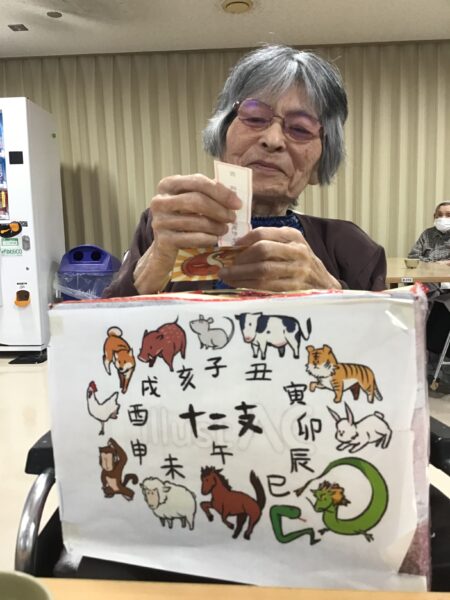 子
丑
寅
卯
辰
巳
午
未
申
酉
戌
亥
十二支